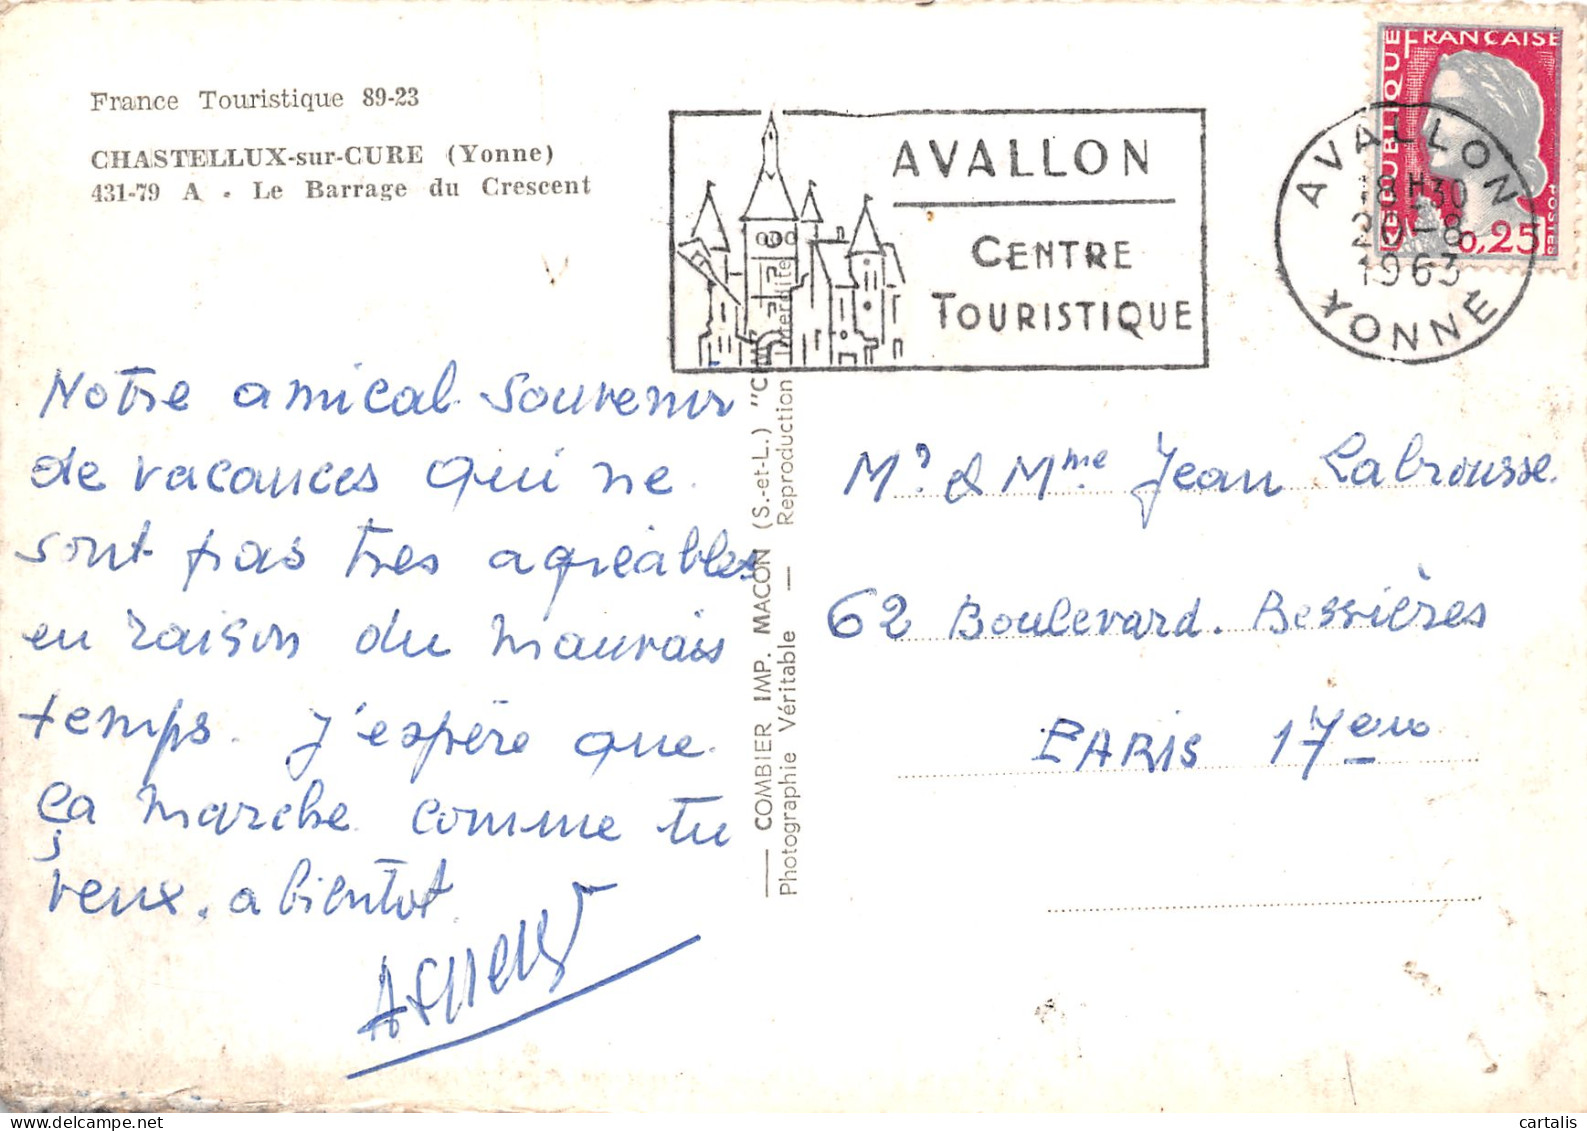 France Touristique 89-23
CHASTELLUX-sur-CURE (Yonne)
431-79 A - Le Barrage du Crescent
AVALLON
CENTRE
TOURISTIQUE
RÉPUBLIQUE FRANÇAISE
POSTES
0,25
AVALLON
18H30
20-8
1963
YONNE
Notre amical souvenir
de vacances qui ne
sont pas tres agréables
en raison du mauvais
temps. J'espère que
ça marche comme tu
veux. a bientot
— COMBIER IMP. MACON (S.-et-L.) "C
Photographie Véritable — Reproduction Interdite
Mr & Mme Jean Labrousse.
62 Boulevard. Bessières
PARIS 17eme
cartalis
delcampe.net